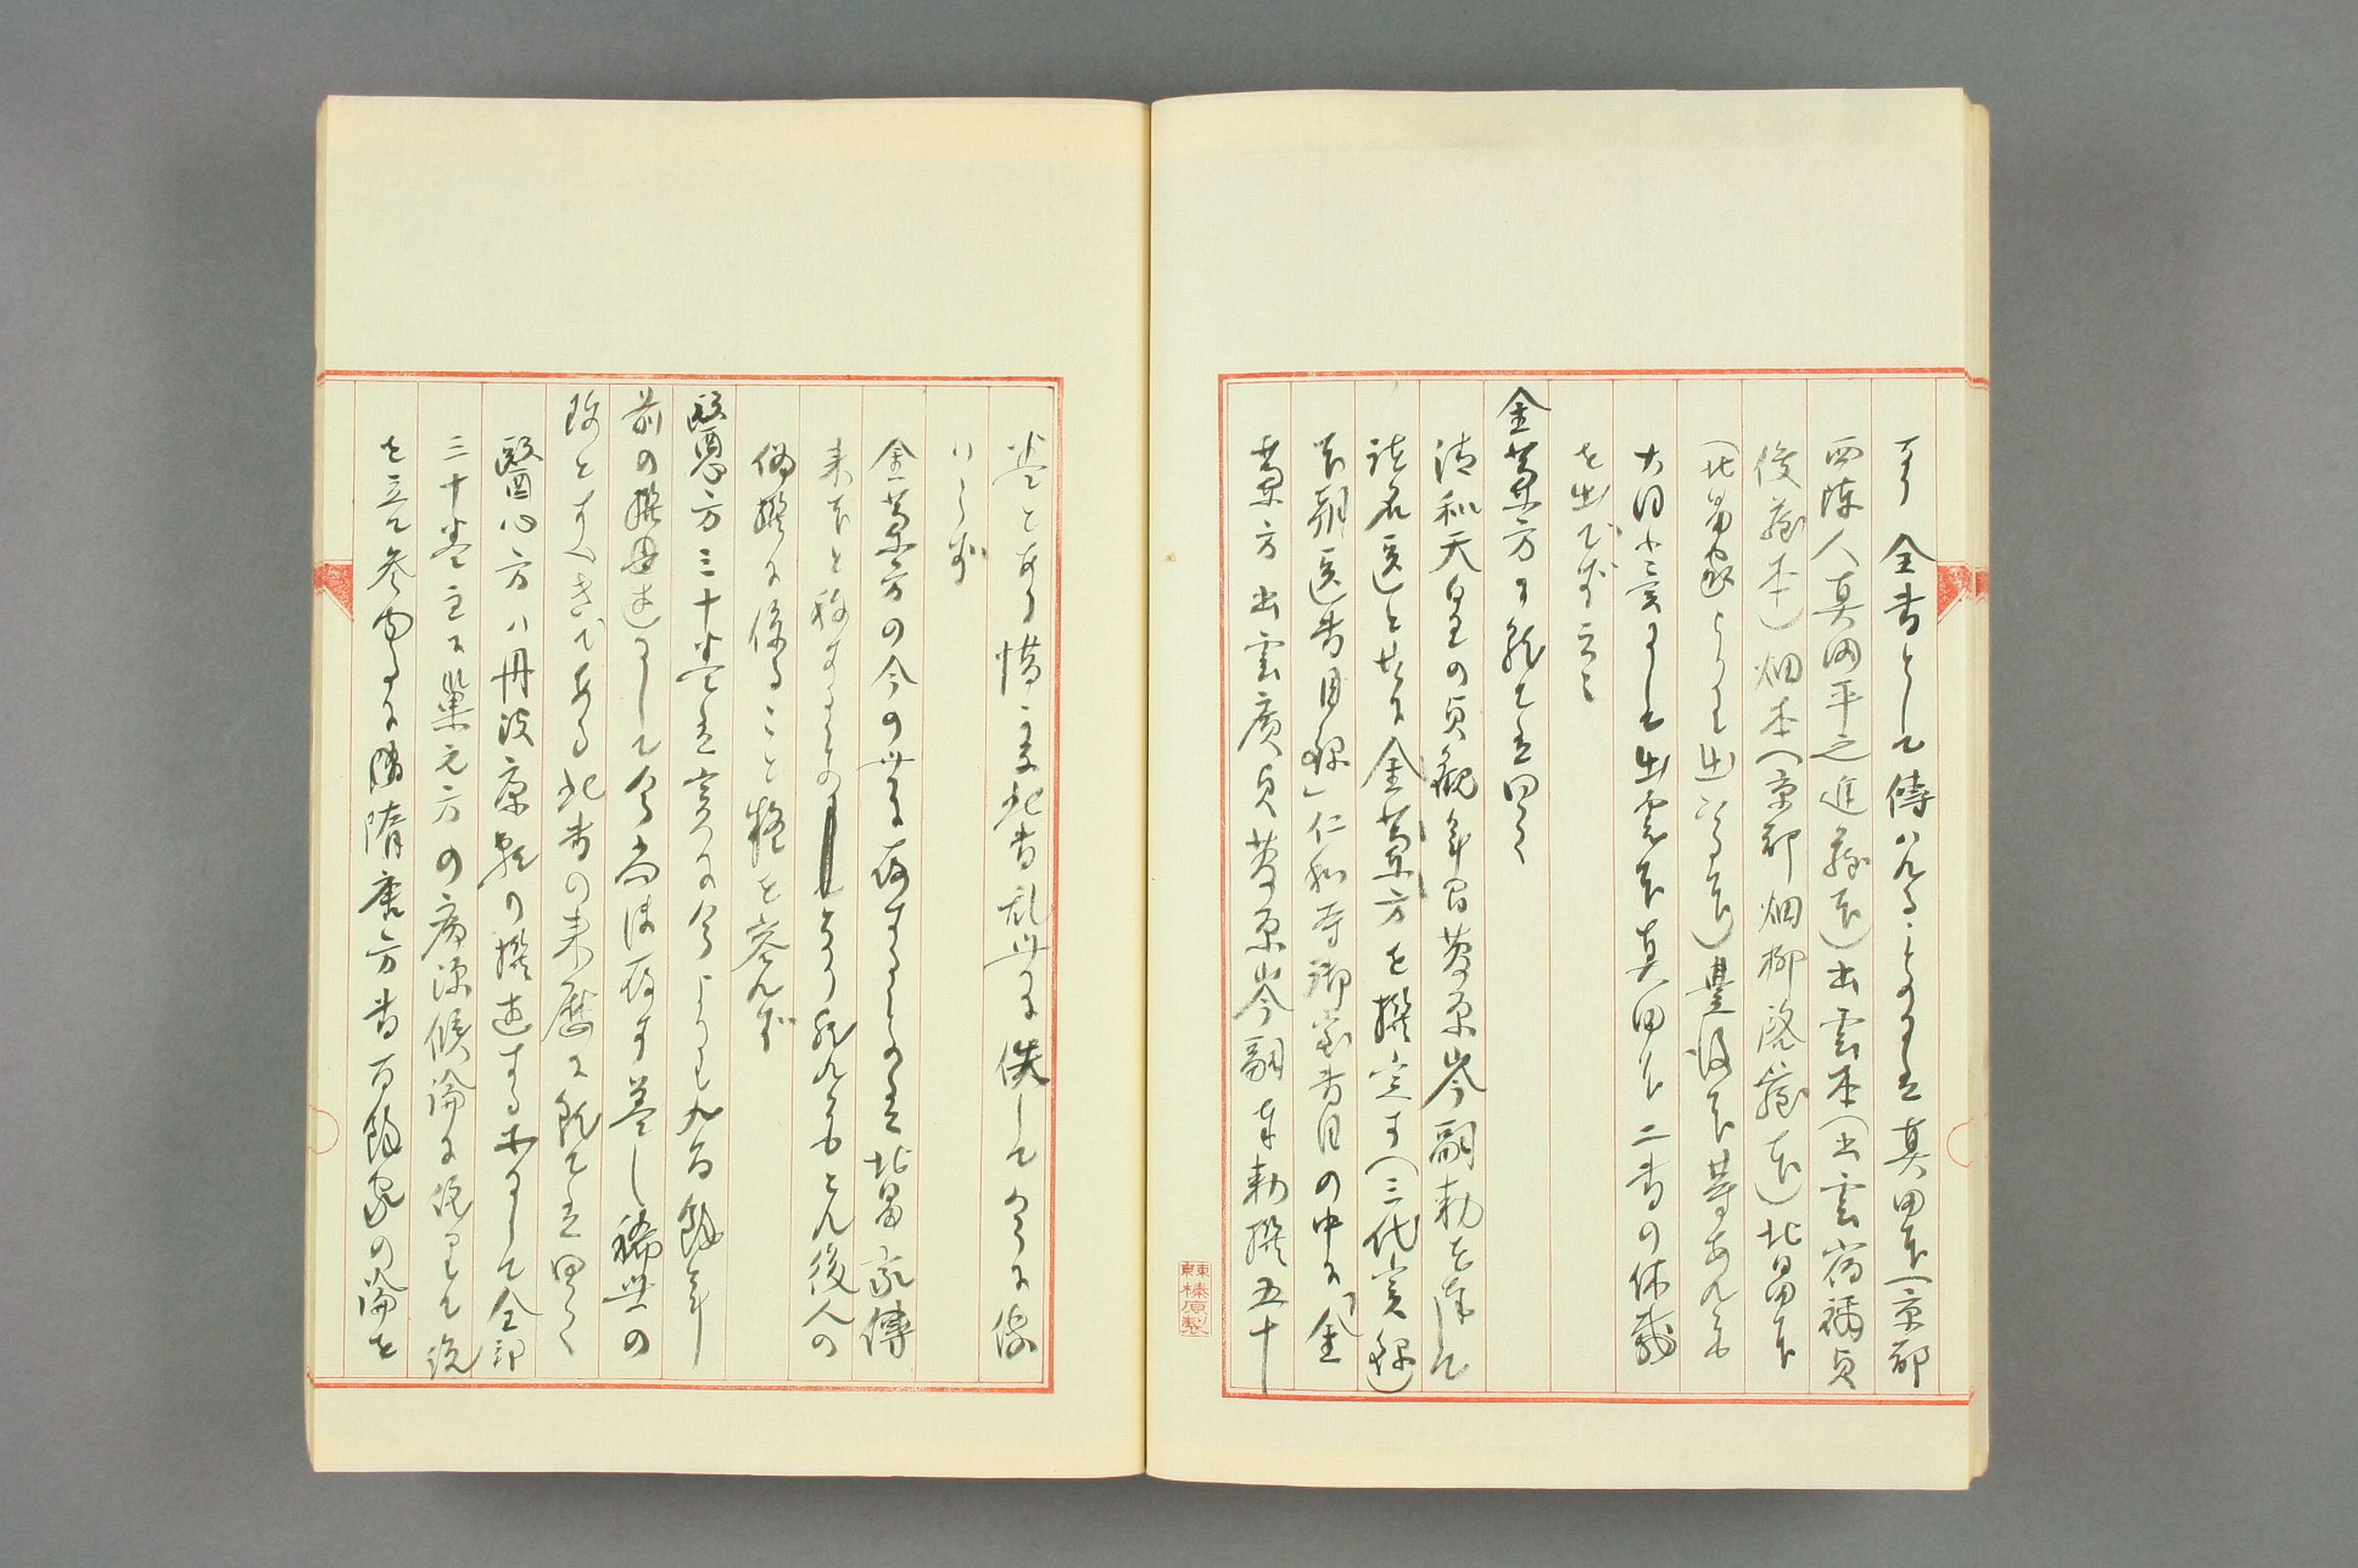 全書として傳はれるものには真田本(京都
西陣人真田平之進蔵本)出雲本(出雲宿禰貞
俊蔵本)畑本(京都畑柳啓蔵本)北畠本
(北畠家より出づる本)豊後本等あれども
大同小異にして出雲本真田本二書の体裁
を出でず云云
金蘭方に就ては曰く
清和天皇の貞観年間菅原岑嗣勅を奉して
諸名医と共に金蘭方を撰定す(三代実録)
本朝医書目録」仁和寺御室書目の中に「金
蘭方 出雲廣貞菅原岑嗣奉勅撰五十
巻とあり惜い哉此書乱世に佚してつひに傳
はらず
金蘭方の今の世に存するものは北畠家傳
来本と称するものあり然れどもこれ後人の
偽撰に係ること疑を容れず
醫心方三十巻は実に今よりも九百餘年
前の撰述にして今尚ほ存す蓋し稀世の
珍とすべきである此書の来歴に就ては曰く
醫心方ハ丹波康頼の撰述する所にして全部
三十巻主に巣元方の病源候論に依りて説
を立て参するに隋唐方書百餘家の論を
東京榛原製